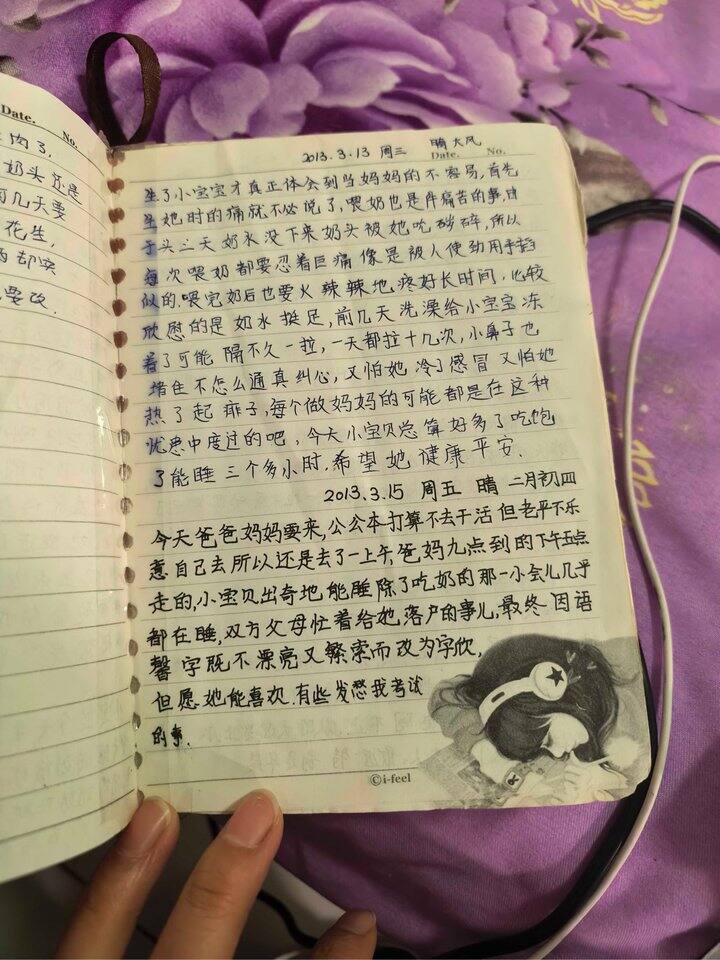 Date. No.
肉了,
奶头还是
前几天要
花生,
西却实
要改.
2013.3.13 周三 晴 大风
Date. No.
生了小宝宝才真正体会到当妈妈的不容易,首先
生她时的痛就不必说了,喂奶也是件痛苦的事,由
于头二天奶水没下来奶头被她吃破碎,所以
每次喂奶都要忍着巨痛像是被人使劲用手掐
似的.喂完奶后也要火辣辣地疼好长时间,比较
欣慰的是奶水挺足,前几天洗澡给小宝宝冻
着了可能隔不久一拉,一天都拉十几次,小鼻子也
堵住不怎么通真纠心,又怕她冷了感冒又怕她
热了起痱子,每个做妈妈的可能都是在这种
忧患中度过的吧,今天小宝贝总算好多了吃饱
了能睡三个多小时.希望她健康平安.
2013.3.15 周五 晴 二月初四
今天爸爸妈妈要来,公公本打算不去干活但老平不乐
意自己去所以还是去了一上午,爸妈九点到的下午五点
走的,小宝贝出奇地能睡除了吃奶的那一小会儿几乎
都在睡,双方父母忙着给她落户的事儿,最终因语
馨字既不漂亮又繁索而改为字欣,
但愿她能喜欢.有些发愁我考试
的事.
©i-feel